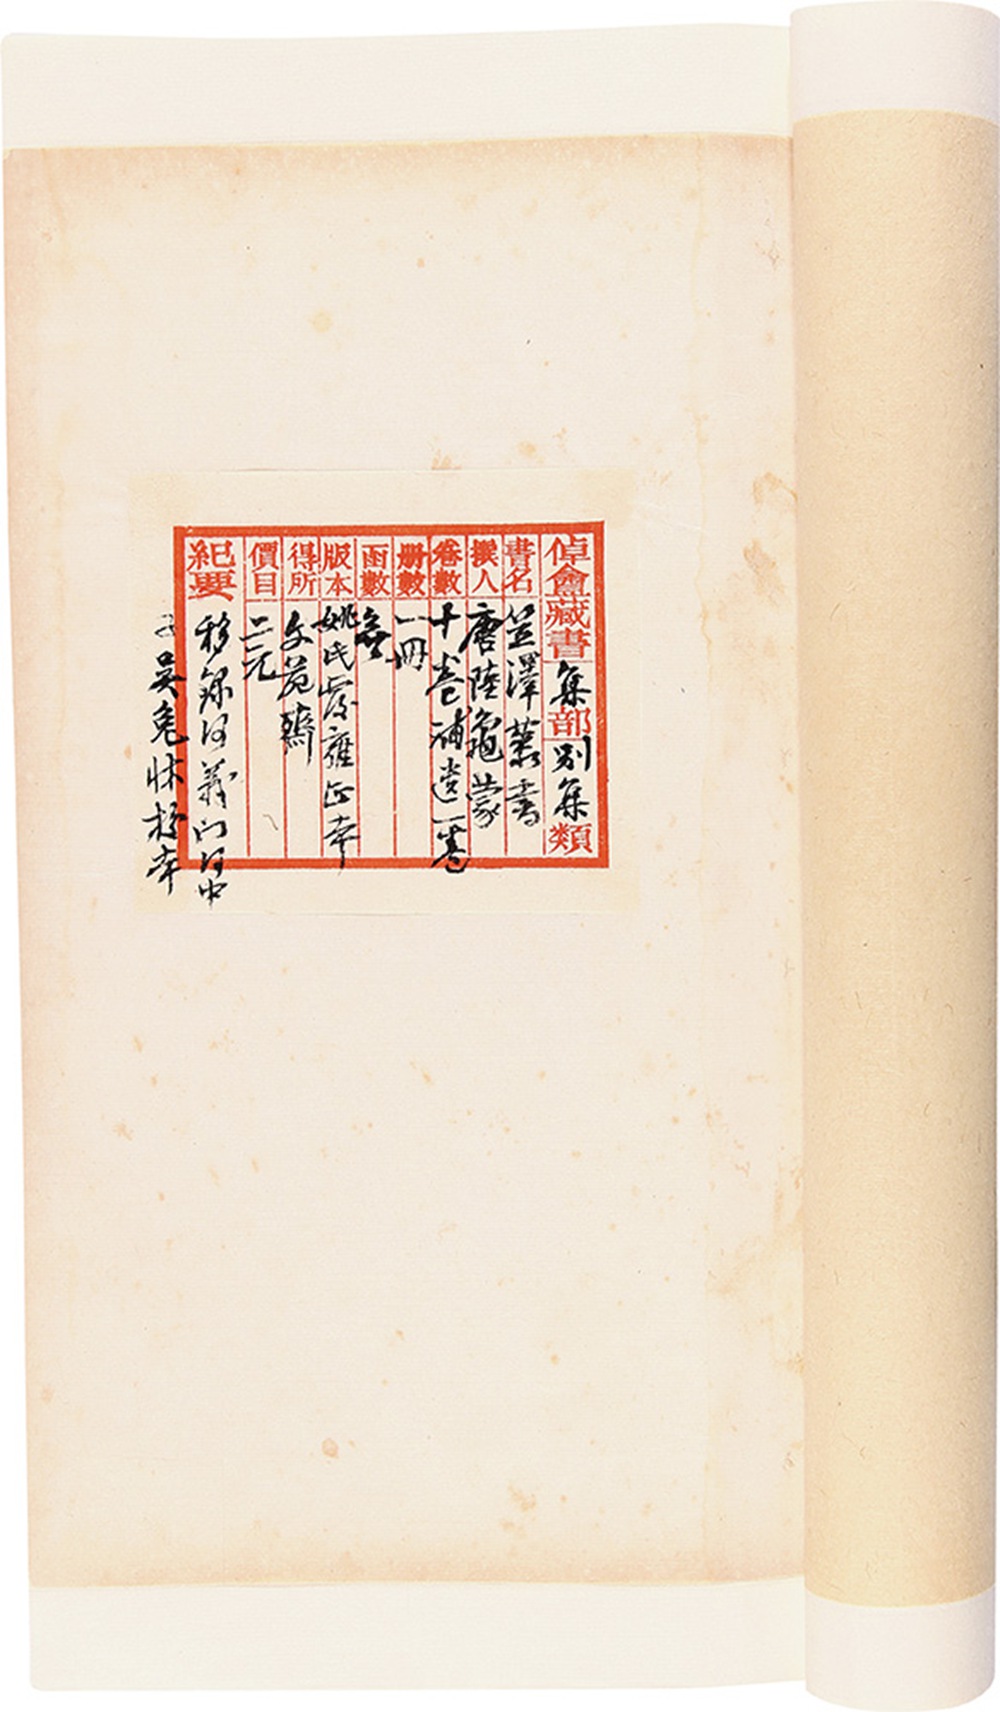 倬盦藏書集部別集類
書名笠澤叢書
撰人唐陸龜蒙
卷數十卷補遺一卷
册數一冊
函數
版本姚氏覆雍正本
得所文苑齋
價目二元
紀要移錄何義門何中
子吳兔牀校本